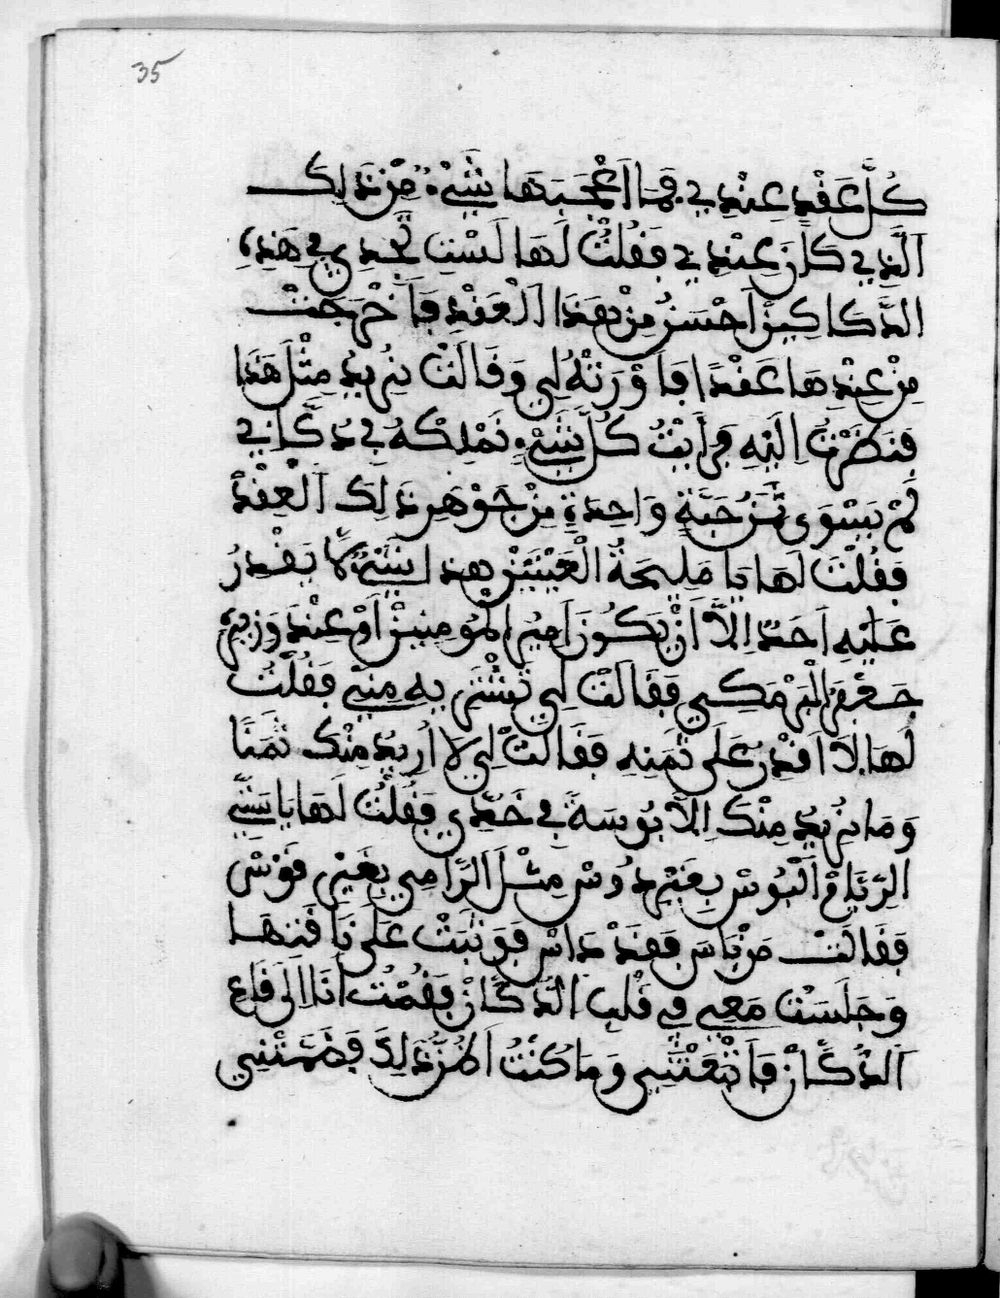 35
كُلَّ عَقْدٍ عِنْدِي فَمَا اَعْجَبَهَا شَيْءٌ مِنْ ذَلِكَ
الَّذِي كَانَ عِنْدِي فَقُلْتُ لَهَا لَسْتِ تَجْدِي فِي هَذِهِ
الدَّكَاكِينَ اَحْسَنُ مِنْ هَذَا الْعَقْدِ فَاَخْرَجَتْ
مِنْ عِنْدِهَا عَقْدًا فَاَوْرَتْهُ لِي وَقَالَتْ نُرِيدُ مِثْلَ هَذَا
فَنَظَرْتُ اِلَيْهِ فَرَاَيْتُ كُلَّ شَيْءٍ نَمْلِكُهُ فِي دُكَّانِي
لَمْ يَسْوَى ثَمَنَ حَبَّةٍ وَاحِدَةٍ مِنْ جَوْهَرِ ذَلِكَ الْعِقْدُ
فَقُلْتُ لَهَا يَا مَلِيحَةُ الْعَيْنَيْنِ هذا شَيْءٌ لَا يَقْدِرُ
عَلَيْهِ اَحَدٌ اِلاَّ اَنْ يَكُونَ اَمِيرِ الْمُومِنِينْ اَوْ عِنْدَ وَزِيرِهِ
جَعْفَرُ الْبَرْمَكِي فَقَالَتْ لِي تَشْتَرِيهِ مِنِّي فَقُلْتُ
لَهَا لاَ اَقْدِرُ عَلَى ثَمَنِهِ فَقَالَتْ لِي لاَ اُرِيدُ مِنْكَ ثَمَنًا
وَمَا نُرِيدُ مِنْكَ اِلاَّ بُوسَةً فِي خَدِّي فَقُلْتُ لَهَا يَا سَتِّي
الرِّيَاحْ الْبُوسْ بِغَيْرِ دُوسْ مِثْلَ الرَّامِي بِغَيْرِ قَوْسْ
فَقَالَتْ مَنْ بَاسَ فَقَدْ دَاسْ فَوَثَبَتْ عَلَى نَاقَتِهَا
وَجَلَسَتْ مَعِي فِي قَلْبِ الدُّكَّانْ فَقُمْتُ اَنَا اِلَى قَاعِ
الدُّكَّانْ فَاَتْبَعَتْنِي وَمَا كُنْتُ اَظُنُّ ذَلِكَ فَضَمَّتْنِي